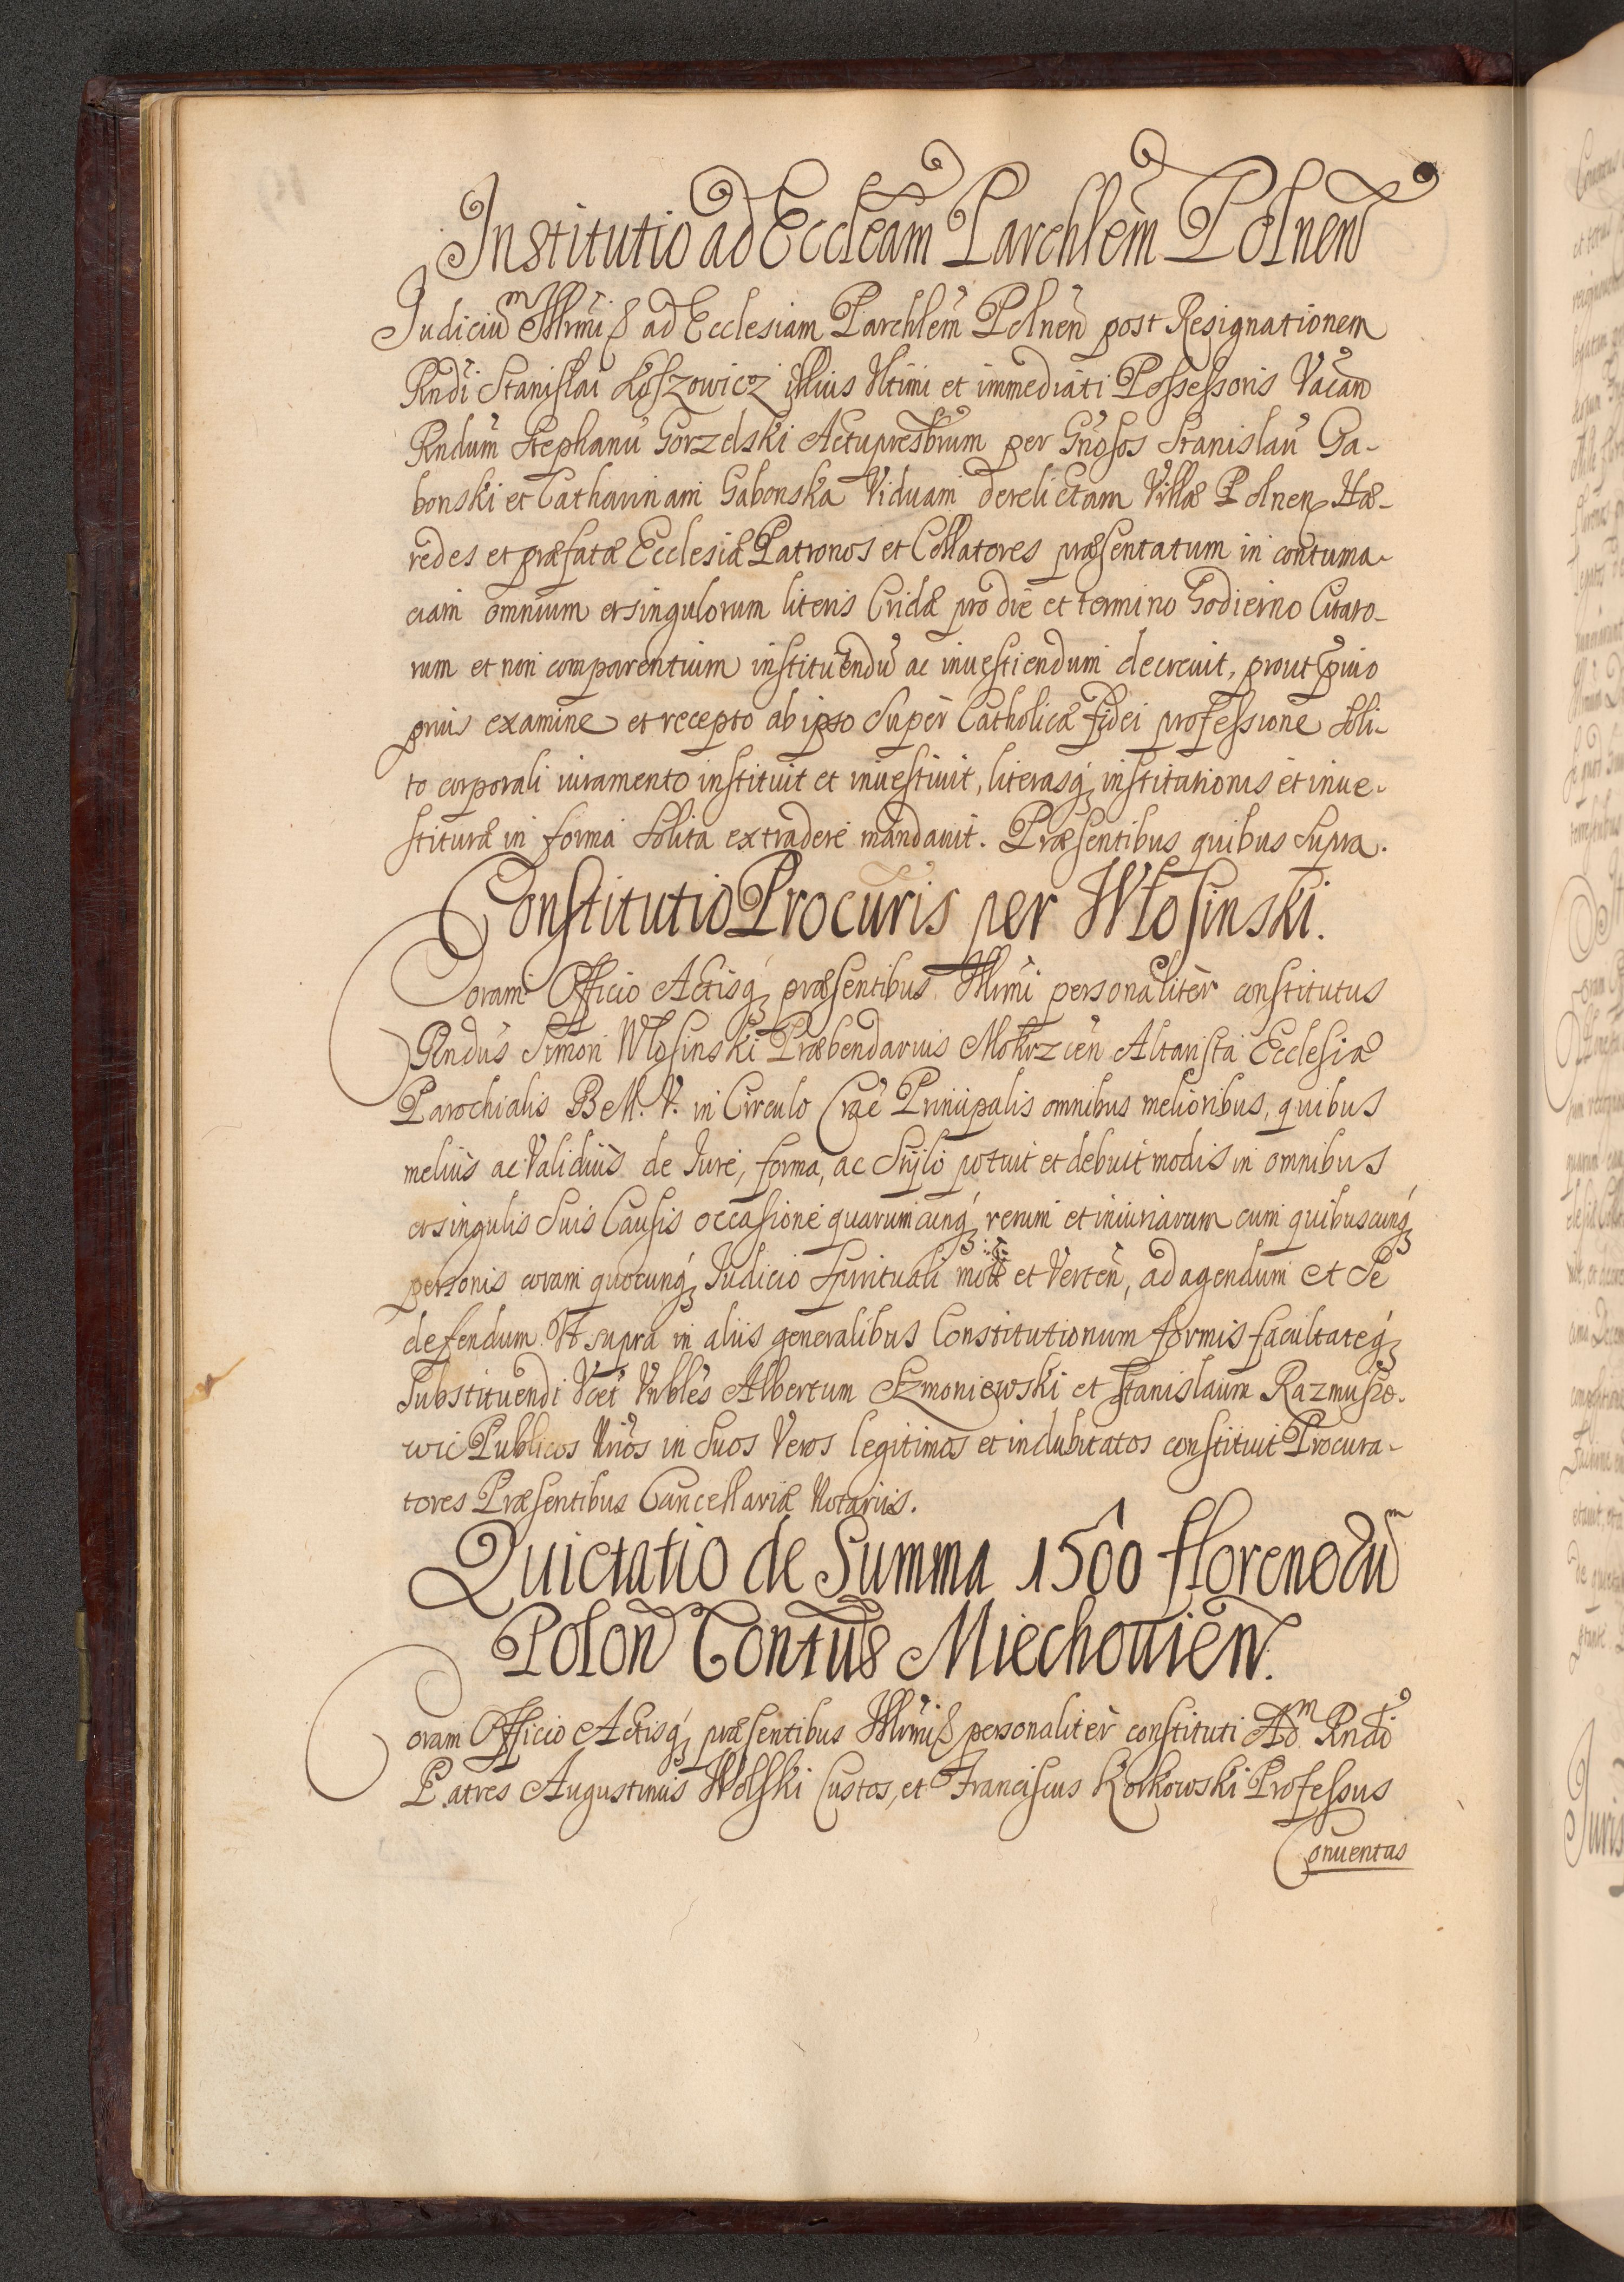 Institutio ad Eccleam Parchlem Polnen
Judiciu͞m Illrmi ad Ecclesiam Parchlem Polnen post Resignationem
Rndi Stanislai Łoszowicz illius Ultimi et immediati Possessoris Vacan
Rndum Stephanu Gorzelski Actupresbrum per Gnosos Stanislau Ga-
bonski et Catharinam Gabonska Viduam derelictam Villæ Polnen Hæ-
redes et præfatæ Ecclesiæ Patronos et Collatores præsentatum in contuma-
ciam omnium et singulorum literis Cridæ pro die et termino hodierno Citato-
rum et non comparentium instituendu ac inuestiendum decreuit, prout pvio
prius examine et recepto ab ipso super Catholicæ fidei professione soli-
to corporali iuramento instituit et inuestiuit, literasq́ institutionis et inue-
stituræ in forma solita extradere mandauit. Præsentibus quibus supra.
Constitutio Procuris per Włosinski.
Coram Officio Actisq́ præsentibus Illrmi personaliter constitutus
Rndus Simon Włosinski Præbendarius Mokrzcen Altarista Ecclesiæ
Parochialis B. M. V. in Circulo Crac Principalis omnibus melioribus, quibus
melius ac Validius de Jure, forma, ac Stÿlo potuit et debuit modis in omnibus
et singulis suis Causis occasione quarumcunq́ rerum et iniuriarum cum quibuscunq́
personis coram quocunq́ Judicio Spirituali mot et Verten, ad agendum et se
defendum Ut supra in aliis generalibus Constitutionum formis facultateq́
Substituendi Vcet Nobles Albertum Szmoniewski et Stanislaum Razmuszo-
wic Publicos Nrios in suos Veros legitimos et indubitatos constituit Procura-
tores Præsentibus Cancellariæ Notariis.
Quietatio de Summa 1500 florenoru͞m
Polon Contus Miechouien.
Coram Officio Actisq́ præsentibus Illrmi personaliter constituti Adm Rndi
Patres Augustinus Wolski Custos, et Franciscus Korkowski Professus
Conuentus